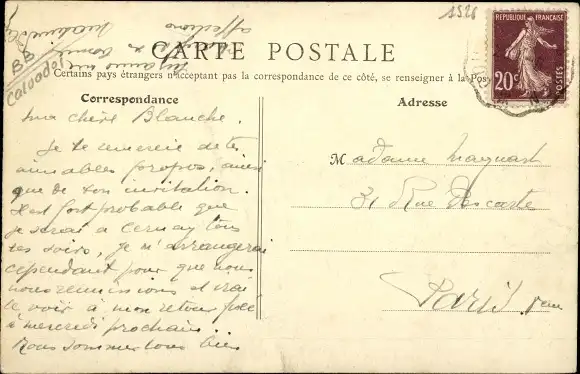 1526
BB
Calvados
affections
CARTE POSTALE
Certains pays étrangers n'acceptant pas la correspondance de ce côté, se renseigner à la Pos
REPUBLIQUE FRANÇAISE
20c
POSTES
Correspondance
ma chère Blanche.
Je te remercie de tes
aimables propos, ainsi
que de ton invitation.
Il est fort probable que
je serai à Cernay tous
ces soirs, je m'arrangerai
cependant pour que nous
nous réunissions et
le voir à mon retour fixé
à mercredi prochain...
Nous sommes tous bien
Adresse
Madame
31 Rue Descarte
Paris